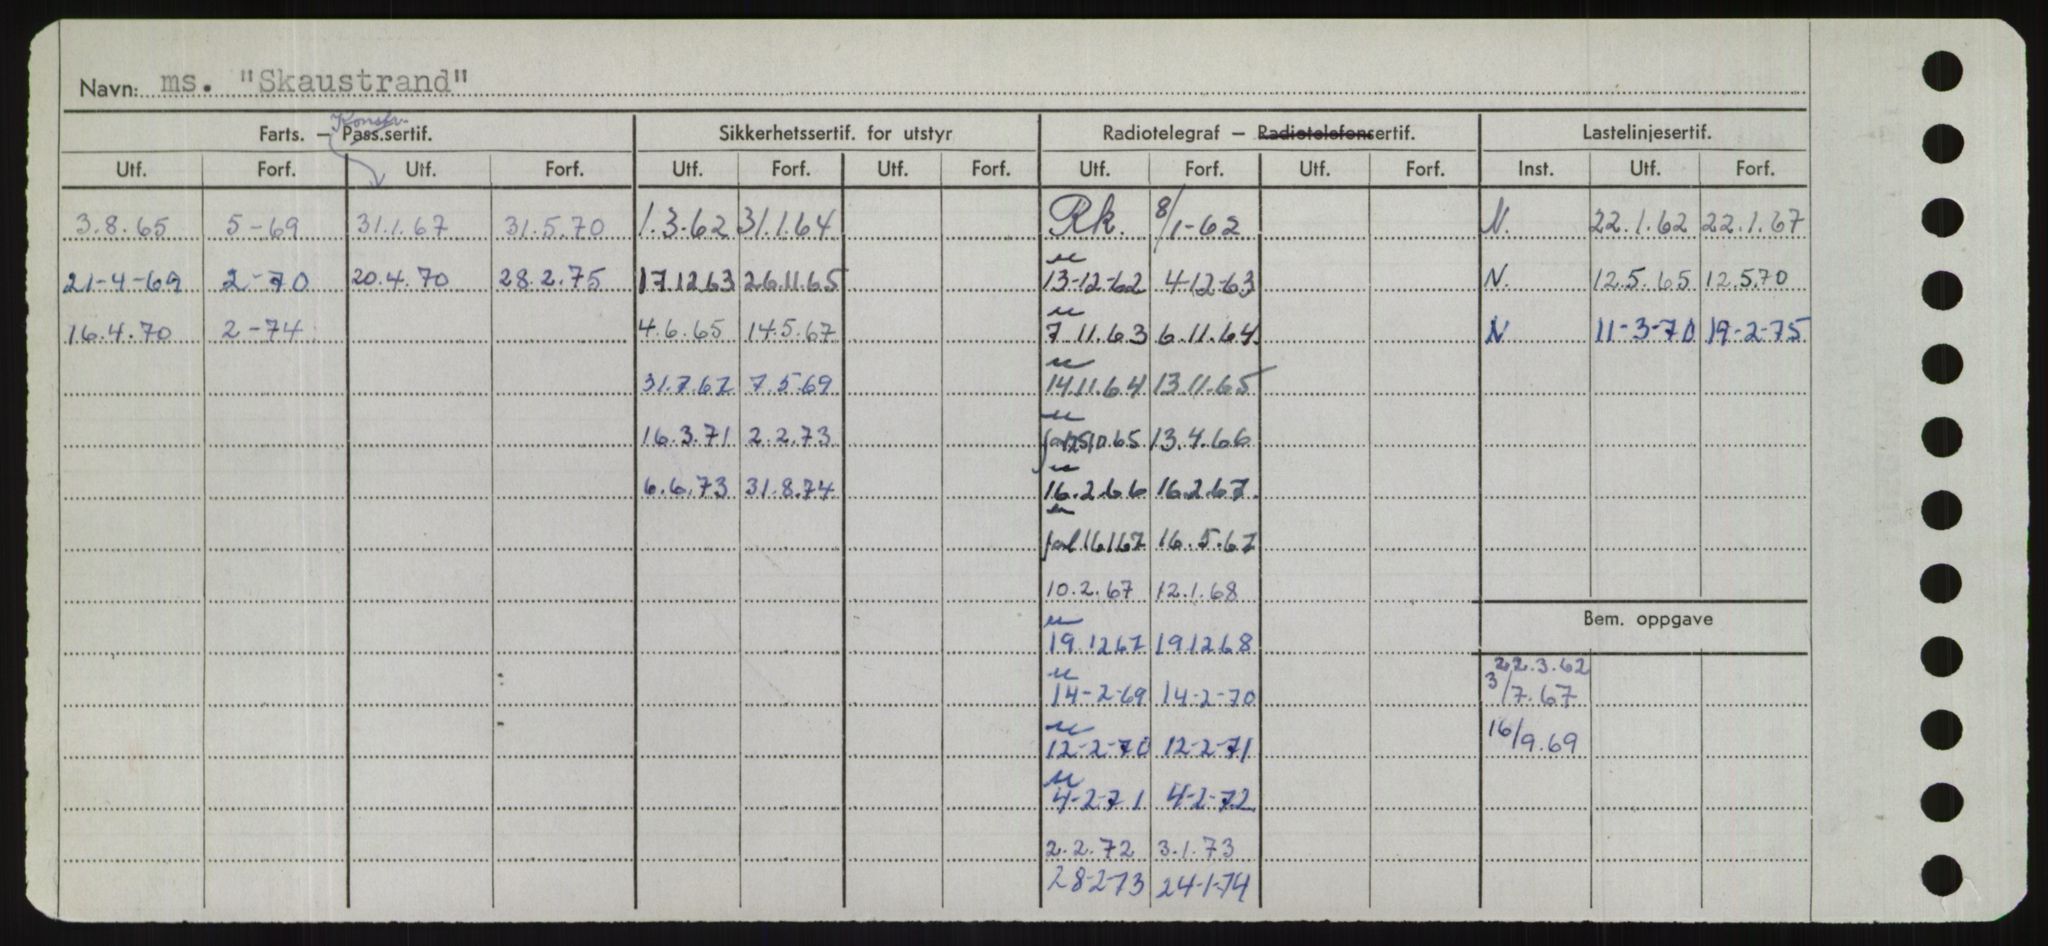 Navn: ms. "Skaustrand"
Konstr.
Farts. – Pass.sertif. Sikkerhetssertif. for utstyr Radiotelegraf – Radiotelefonsertif. Lastelinjesertif.
Utf. Forf. Utf. Forf. Utf. Forf. Utf. Forf. Utf. Forf. Utf. Forf. Inst. Utf. Forf.
3.8.65 5-69 31.1.67 31.5.70 1.3.62 31.1.64 Rk. 8/1-62 N. 22.1.62 22.1.67
21-4-69 2-70 20.4.70 28.2.75 17.12.63 26.11.65 13-12-62 4-12-63 N. 12.5.65 12.5.70
16.4.70 2-74 4.6.65 14.5.67 7 11.63 6.11.64. N 11-3-70 19-2-75
31.7.67 7.5-69 14.11.64 13.11.65
16.3.71 2.2.73 13.4.66
6.6.73 31.8.74 16.2.66 16.2.67.
16.5.67
10.2.67 12.1.68
Bem. oppgave
19.1267 191268
22.3.62
14-2-69 14-2-70 3/7.67
12-2-70 12-2-71 16/9.69
4-2-71 4-2-72
2.2.72 3.1.73
28-2-73 24-1-74